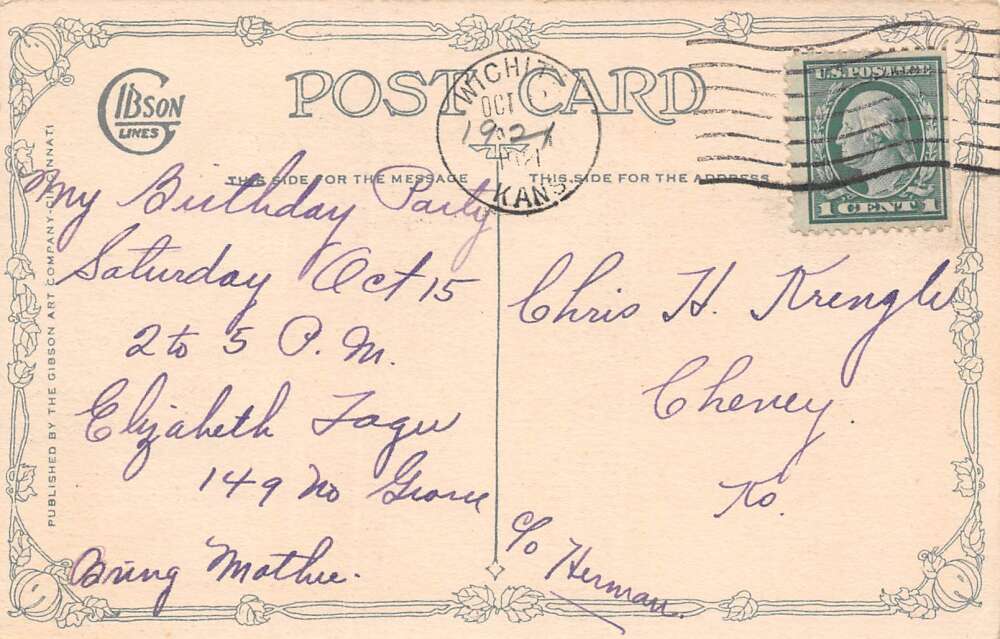 GIBSON
LINES
POST CARD
WICHITA
OCT
1921
KANS
U.S. POSTAGE
1 CENT 1
THIS SIDE FOR THE MESSAGE
THIS SIDE FOR THE ADDRESS
PUBLISHED BY THE GIBSON ART COMPANY-CINCINNATI
My Birthday Party
Saturday Oct 15
2 to 5 P.M.
Elizabeth
149 No Grove
Bring Mother.
Chris H. Krengle
Cheney
Ks.
c/o Herman.